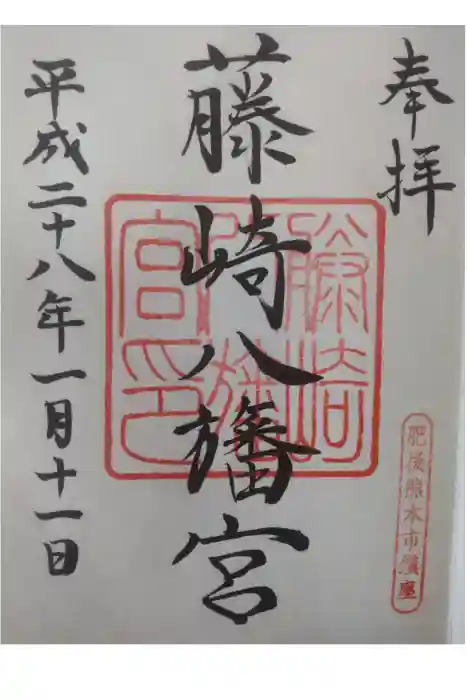 奉拝
肥後熊本市鎮座
藤崎八旛宮
藤崎
八旛
宮印
平成二十八年一月十一日